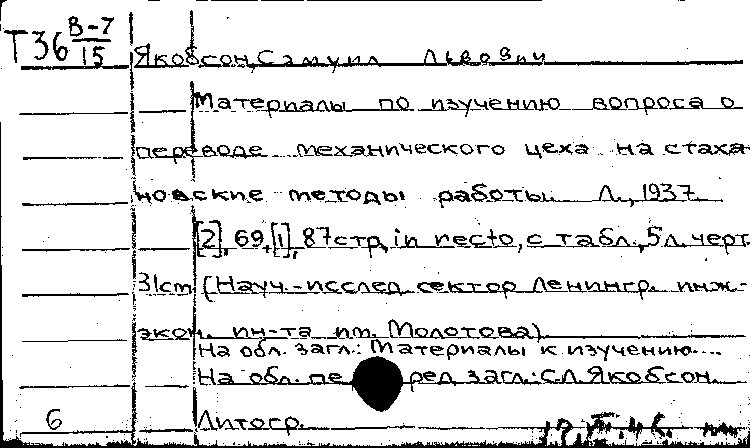 Т36 В-7/15
Якобсон, Самуил Львович
Материалы по изучению вопроса о
переводе механического цеха на стаха-
новские методы работы. Л., 1937.
[2], 69, [1], 87 стр, in recto, с табл., 5 л. черт.
31 cm (Науч.-исслед. сектор Ленингр. инж-
экон. ин-та им. Молотова)
На обл. загл.: Материалы к изучению....
На обл. пе ред загл.: С.Л. Якобсон.
6 Литогр.